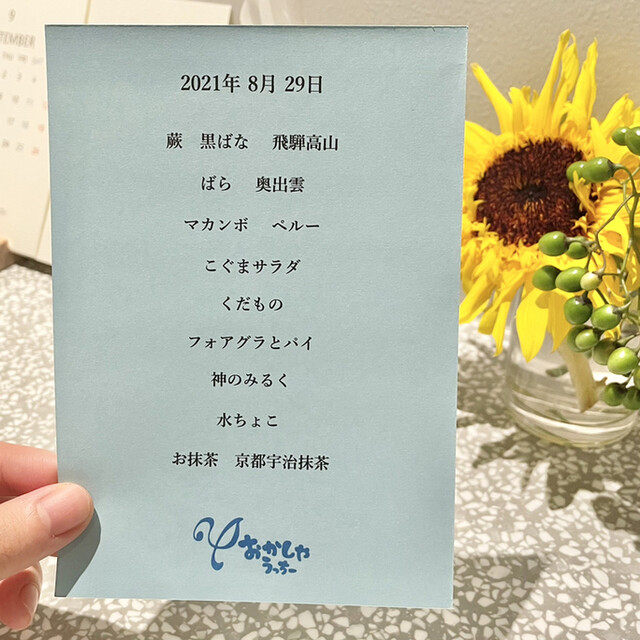 9
2021年 8月 29日
蕨 黒ばな 飛騨高山
ばら 奥出雲
マカンボ ペルー
こぐまサラダ
くだもの
フォアグラとパイ
神のみるく
水ちょこ
お抹茶 京都宇治抹茶
おかしや
うっちー